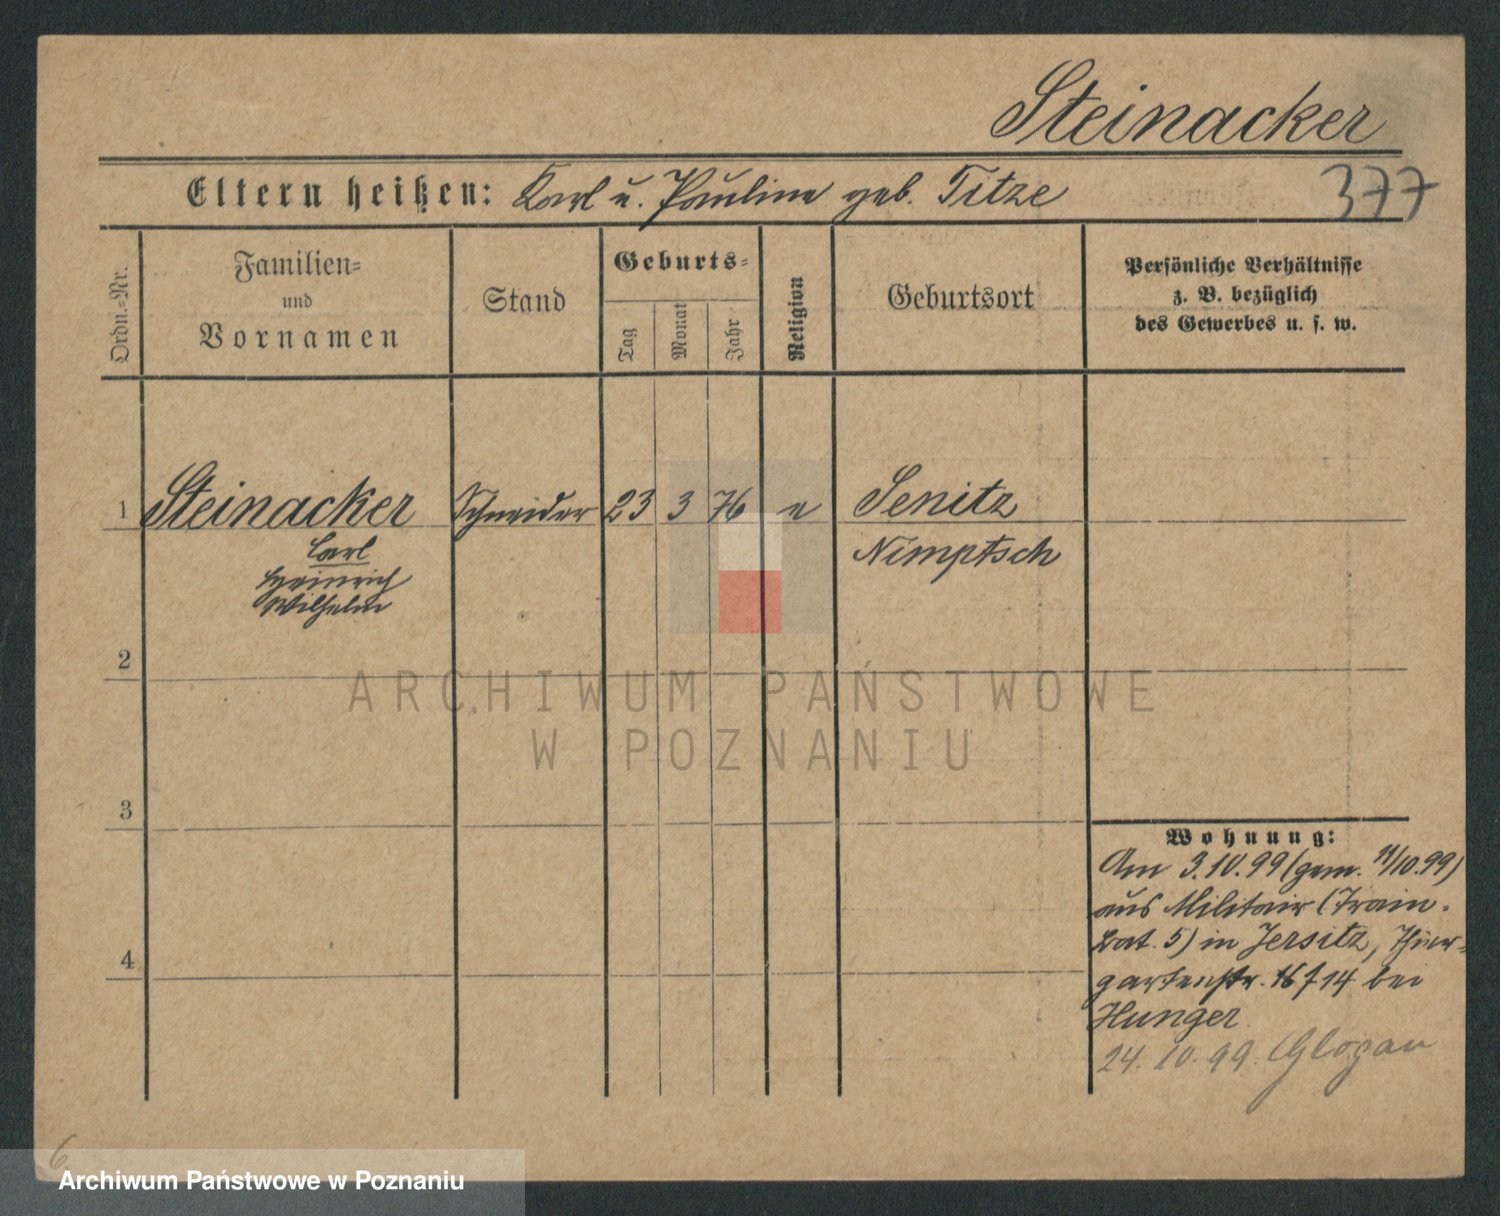 Steinacker
377
Eltern heißen: Karl u. Pauline geb. Titze
Ordn.-Nr.
Familien-
und
Vornamen
Stand
Geburts-
Tag
Monat
Jahr
Religion
Geburtsort
Persönliche Verhältnisse
z. B. bezüglich
des Gewerbes u. s. w.
1 Steinacker Schneider 23 3 76 e Senitz
Carl
Heinrich
Wilhelm
Nimptsch
2
3
4
Wohnung:
Am 3.10.99 (gem. 11/10.99)
aus Militair (Train-
bat. 5) in Jersitz, Thier-
gartenstr. 14 bei
Hunger
24. 10. 99. Glogau
6
ARCHIWUM PAŃSTWOWE
W POZNANIU
Archiwum Państwowe w Poznaniu